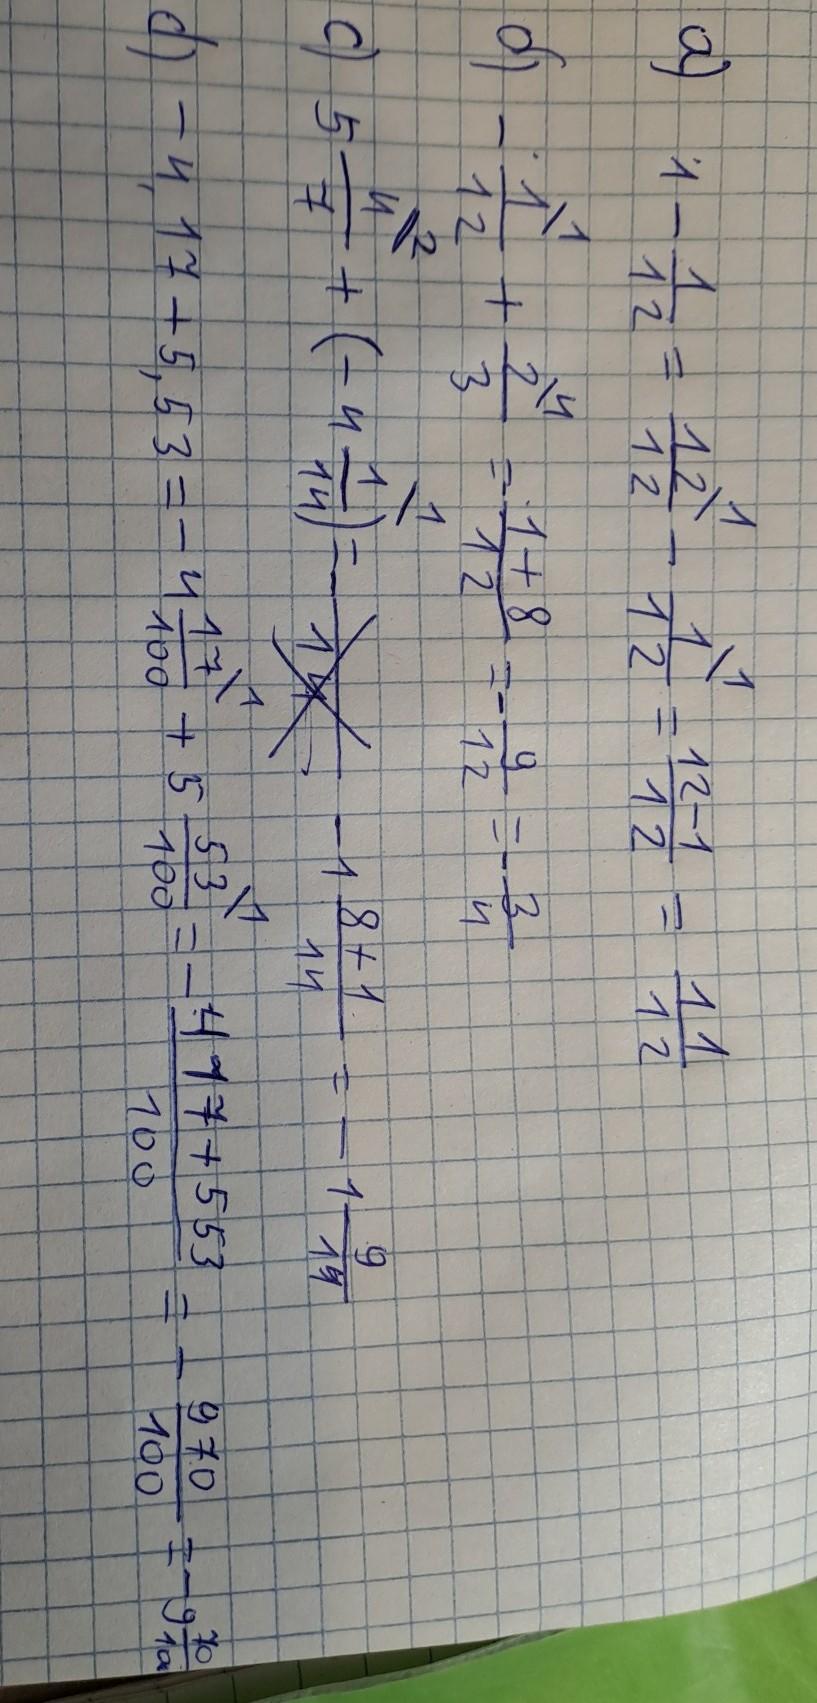 a) 1 - 1/12 = 12\1/12 - 1\1/12 = 12-1/12 = 11/12
б) - 1\1/12 + 2\4/3 = - 1+8/12 = - 9/12 = - 3/4
c) 5 4\2/7 + (- 4 1\1/14) = - 1 8+1/14 = - 1 9/14
d) - 4,17 + 5,53 = - 4 17\1/100 + 5 53\1/100 = - 417+553/100 = - 970/100 = - 9 70/100